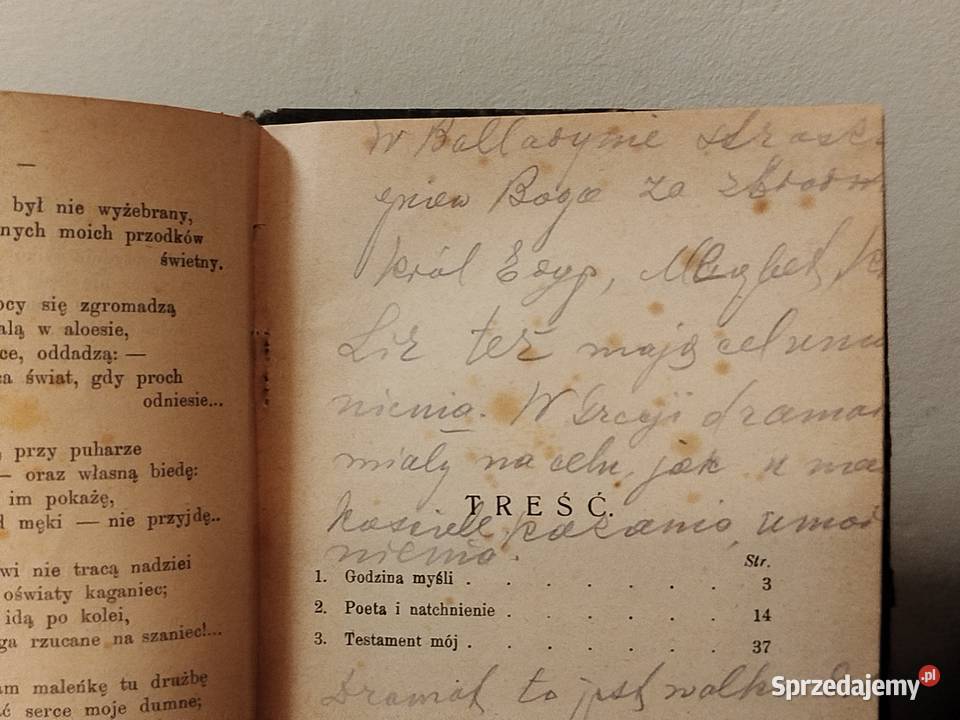 —
był nie wyżebrany,
nych moich przodków
świetny.
ocy się zgromadzą
alą w aloesie,
ce, oddadzą: —
ca świat, gdy proch
odniesie...
przy puharze
— oraz własną biedę:
im pokażę,
męki — nie przyjdę..
wi nie tracą nadziei
oświaty kaganiec;
idą po kolei,
ga rzucane na szaniec!...
am maleńkę tu drużbę
ać serce moje dumne;
W Balladynie
gniew Boga za
Król Edyp, Magbet,
Lir też mają cel umo
nienia. W Grecji drama
miały na celu, jak u na
TREŚĆ.
kościele kazania, umo
nienia.
Str.
1. Godzina myśli . . . . . . 3
2. Poeta i natchnienie . . . . . . 14
3. Testament mój . . . . . . 37
Dramat to jest walk
Sprzedajemy.pl